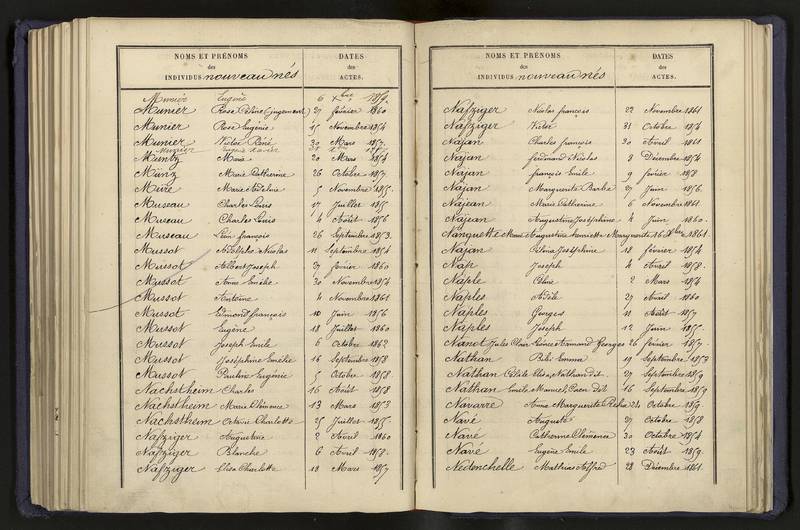 NOMS ET PRÉNOMS
des
INDIVIDUS nouveau nés
DATES
des
ACTES.
Munier Eugène 6 Xbre 1859.
Munier Rose Céline (jugement) 27 février 1860
Munier Rose Eugénie 15 Novembre 1854
Munier Victor René 30 Mars 1857.
Munier Eugène Xavier
Müntz Marie 20 Mars 1854
Münz Marie Catherine 26 Octobre 1857
Muré Marie Adeline 5 Novembre 1855.
Museau Charles Louis 17 Juillet 1855
Museau Charles Louis 4 Août 1856
Museau Léon françois 26 Septembre 1853.
Mussot Adolphe Nicolas 11 Septembre 1854
Mussot Albert Joseph 27 février 1860
Mussot Anne Emélie 30 Novembre 1854
Mussot Antoine 4 Novembre 1861
Mussot Edmond françois 10 Juin 1856
Mussot Eugène 18 Juillet 1860
Mussot Joseph Emile 6 Octobre 1862
Mussot Joséphine Emélie 16 Septembre 1858
Mussot Pauline Eugénie 5 Octobre 1858
Nachstheim Charles 16 Août 1858
Nachstheim Marie Clémence 13 Mars 1853
Nachstheim Octavie Charlotte 25 Juillet 1855.
Nafziger Augustine 2 Avril 1860
Nafziger Blanche 6 Avril 1858.
Nafziger Elisa Charlotte 18 Mars 1857
NOMS ET PRÉNOMS
des
INDIVIDUS nouveau nés
DATES
des
ACTES.
Nafziger Nicolas françois 22 Novembre 1861
Nafziger Victor 31 Octobre 1854
Najan Charles françois 30 Avril 1861
Najan ferdinand Nicolas 8 Décembre 1854
Najan françois Emile 9 février 1858
Najan Marguerite Barbe 27 Juin 1856
Najean Marie Catherine 6 Novembre 1861
Najean Augustine Joséphine 4 Juin 1860.
Nanguette Marie Augustine henriette Marguerite 16 Xbre 1861.
Najan Joséphine 18 février 1854
Nap Joseph 4 Avril 1858.
Naple Céline 2 Mars 1854
Naples Adèle 27 Avril 1860
Naples Georges 11 Août 1857
Naples Joseph 12 Juin 1855.
Nanot Jules Georges 26 février 1857.
Nathan Emma 19 Septembre 1853
Nathan Nathan dit 27 Septembre 1859
Nathan Emile Manuel, Caen dit 16 Septembre 1859
Navarre Anna Marguerite 24 Octobre 1859.
Navé Auguste 27 Octobre 1858
Navé Catherine Clémence 30 Octobre 1854
Navé Eugène Emile 23 Août 1859.
Nedenchelle Mathias Alfred 28 Décembre 1861.